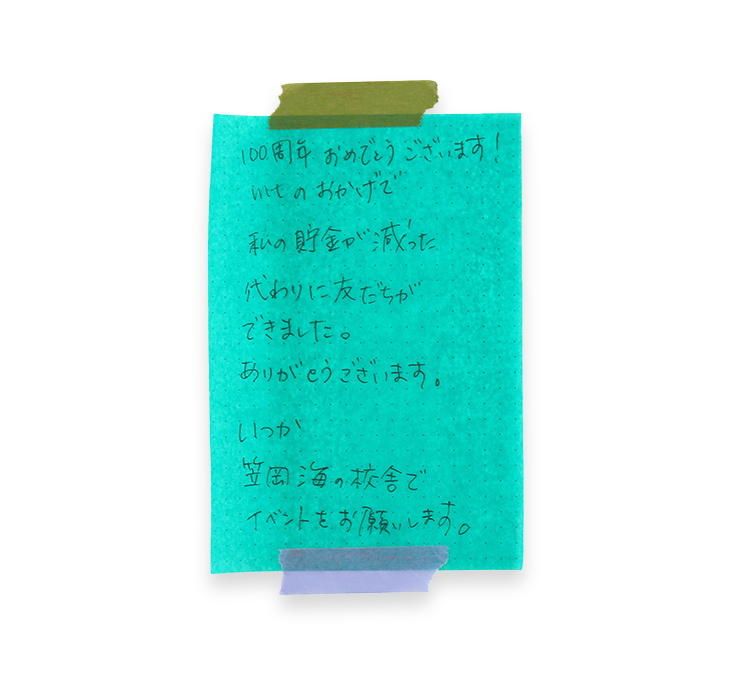 100周年 おめでとうございます！
mtのおかげで
私の貯金が減った
代わりに友だちが
できました。
ありがとうございます。
いつか
笠岡 海の校舎で
イベントをお願いします。